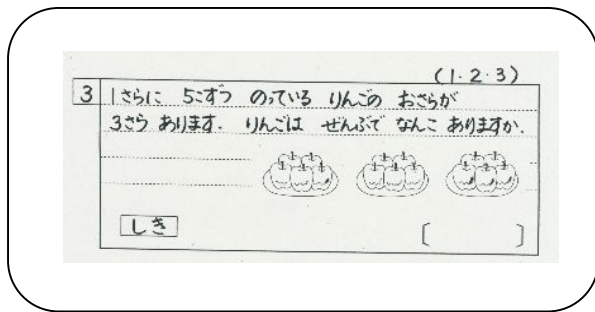 (1・2・3)
3 1さらに 5こずつ のっている りんごの おさらが
3さら あります. りんごは ぜんぶで なんこ ありますか.
しき [ ]